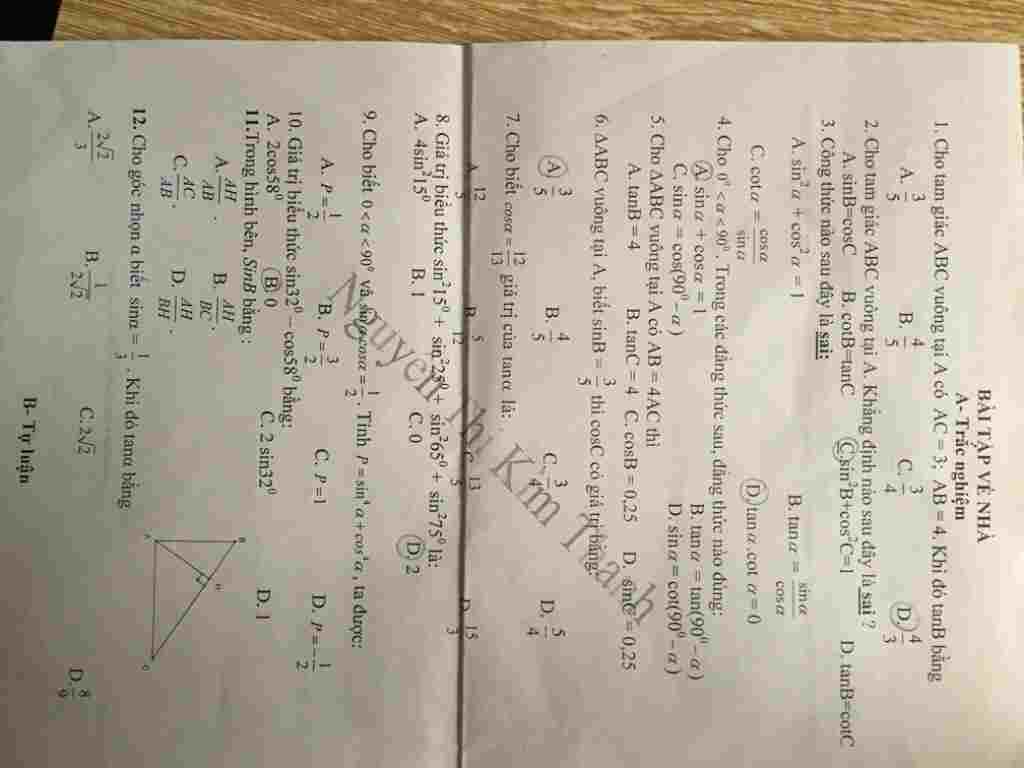 BÀI TẬP VỀ NHÀ
A- Trắc nghiệm
1. Cho tam giác ABC vuông tại A có AC = 3; AB = 4. Khi đó tanB bằng
A. 3/5 B. 4/5 C. 3/4 D. 4/3
2. Cho tam giác ABC vuông tại A. Khẳng định nào sau đây là sai ?
A. sinB=cosC B. cotB=tanC C. sin²B+cos²C=1 D. tanB=cotC
3. Công thức nào sau đây là sai:
A. sin²α + cos²α = 1 B. tanα = sinα/cosα
C. cotα = cosα/sinα D. tanα.cot α = 0
4. Cho 0⁰ < α < 90⁰. Trong các đẳng thức sau, đẳng thức nào đúng:
A. sinα + cosα = 1 B. tanα = tan(90⁰ − α)
C. sinα = cos(90⁰ − α) D. sinα = cot(90⁰ − α)
5. Cho ΔABC vuông tại A có AB = 4AC thì
A. tanB = 4 B. tanC = 4 C. cosB = 0,25 D. sinC = 0,25
6. ΔABC vuông tại A, biết sinB = 3/5 thì cosC có giá trị bằng:
A. 3/5 B. 4/5 C. 3/4 D. 5/4
7. Cho biết cosα = 12/13 giá trị của tanα là:
A. 12/5 B. 5/12 C. 13/5 D. 15/3
8. Giá trị biểu thức sin²15⁰ + sin²25⁰ + sin²65⁰ + sin²75⁰ là:
A. 4sin²15⁰ B. 1 C. 0 D. 2
9. Cho biết 0 < α < 90⁰ và sinα.cosα = 1/2. Tính P = sin⁴α + cos⁴α, ta được:
A. P = 1/2 B. P = 3/2 C. P = 1 D. P = −1/2
10. Giá trị biểu thức sin32⁰ − cos58⁰ bằng:
A. 2cos58⁰ B. 0 C. 2 sin32⁰ D. 1
11.Trong hình bên, SinB bằng :
A. AH/AB. B. AH/BC.
C. AC/AB. D. AH/BH.
B
H
A
C
12. Cho góc nhọn α biết sinα = 1/3. Khi đó tanα bằng
A. 2√2/3 B. 1/2√2 C. 2√2 D. 8/9
B- Tự luận
Nguyễn Thị Kim Thanh